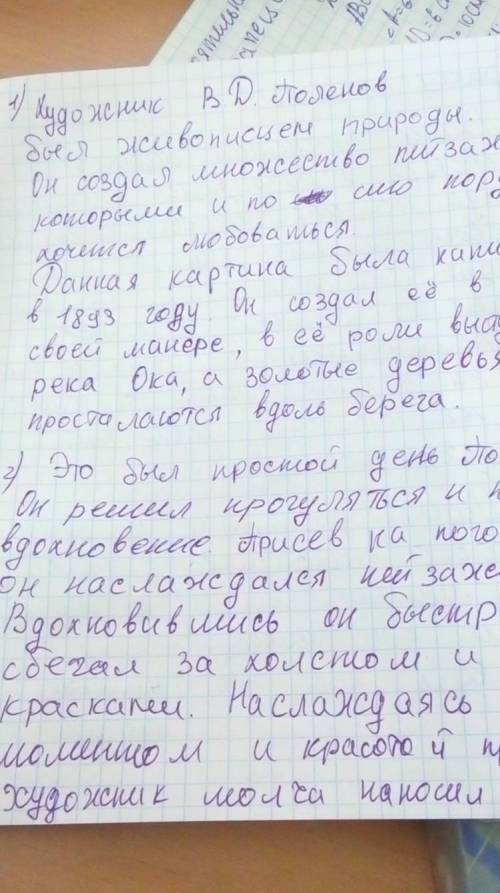 1) Художник В.Д. Поленов
был живописцем природы.
Он создал множество пейзаж
которыми и по сию пор
хочется любоваться.
Данная картина была напи
в 1893 году. Он создал её в
своей манере, в её роли выс
река Ока, а золотые деревья
простилаются вдоль берега.
2) Это был простой день По
Он решил прогуляться и п
вдохновение. Присев на пого
он наслаждался пейзаже
Вдохновившись он быстр
сбегал за холстом и
красками. Наслаждаясь
моментом и красотой п
художник молча наносил